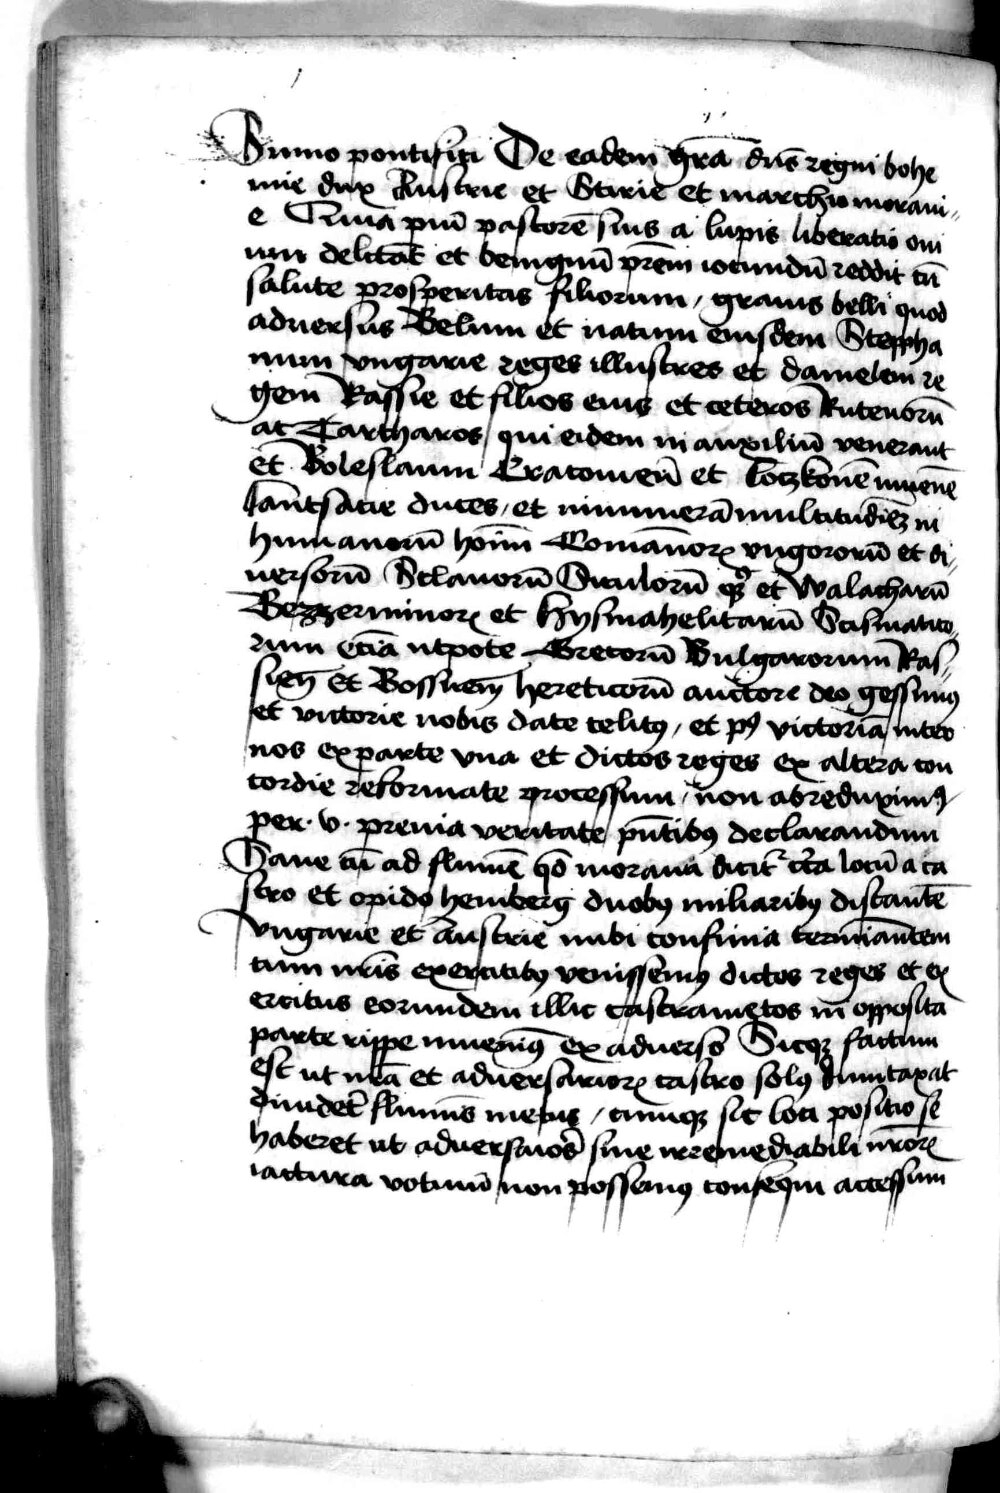 Sumo pontifici De eadem gr̄a dn̄s regni bohe
mie dux Austrie et Stirie et marchio moravi⸗
e Quia piū pastorē suis a lupis liberatio oui
um delc̄tat et benignū pr̄em iocundū reddit cū
salute prosperitas filiorum / gravis belli quod
adversus Belum et natum eiusdem Steppha
num vngarie reges illustres et danielem re
gem Rassie et filios eius et ceteros Rutenorū
ac Tartharos qui eidem in auxiliū venerant
et Boleslaum Cracoviēn et Loczkonē iuvenē
Lanczacie duces / et innumerā multitudinē in
humanorū hoīm Comānorꝝ vngarorū et di⸗
versorū Sclavorū Siculorū qꝫ et Walacharū
Bezzerminorꝝ et Hysmahelitarū Scismatico⸗
rum ec̄ia utpote Grecorū Bulgarorum Ras⸗
sieñ et Bossneñ hereticorū auctore deo gessimꝰ
et victorie nobis date celitꝰ / et pꝰ victoriā inter
nos ex parte vna et dictos reges ex altera con
cordie reformate processum / non abreduximꝰ
per · v · previa veritate pn̄tibꝰ declarandum
Sane cū ad flumē qd̄ morava dicit᷑ circa locū a ca
stro et opido heimberg duobꝰ miliaribꝰ distantē
vngarie et Austrie in ubi confinia termiantem
cum nr̄is exercitibꝰ venissemꝰ dictos reges et ex
ercitus eorundem illic castrametos in opposita
parte rippe invenimꝰ ex adverso Sicqꝫ factum
est ut nr̄a et adversariorꝝ castra solꝰ dumtaxat
divideret flumīs metus / cumqꝫ sic loci positio se
haberet ut adversarios sine irremediabili nr̄orꝝ
iactura votivū non possemꝰ consequi accessum